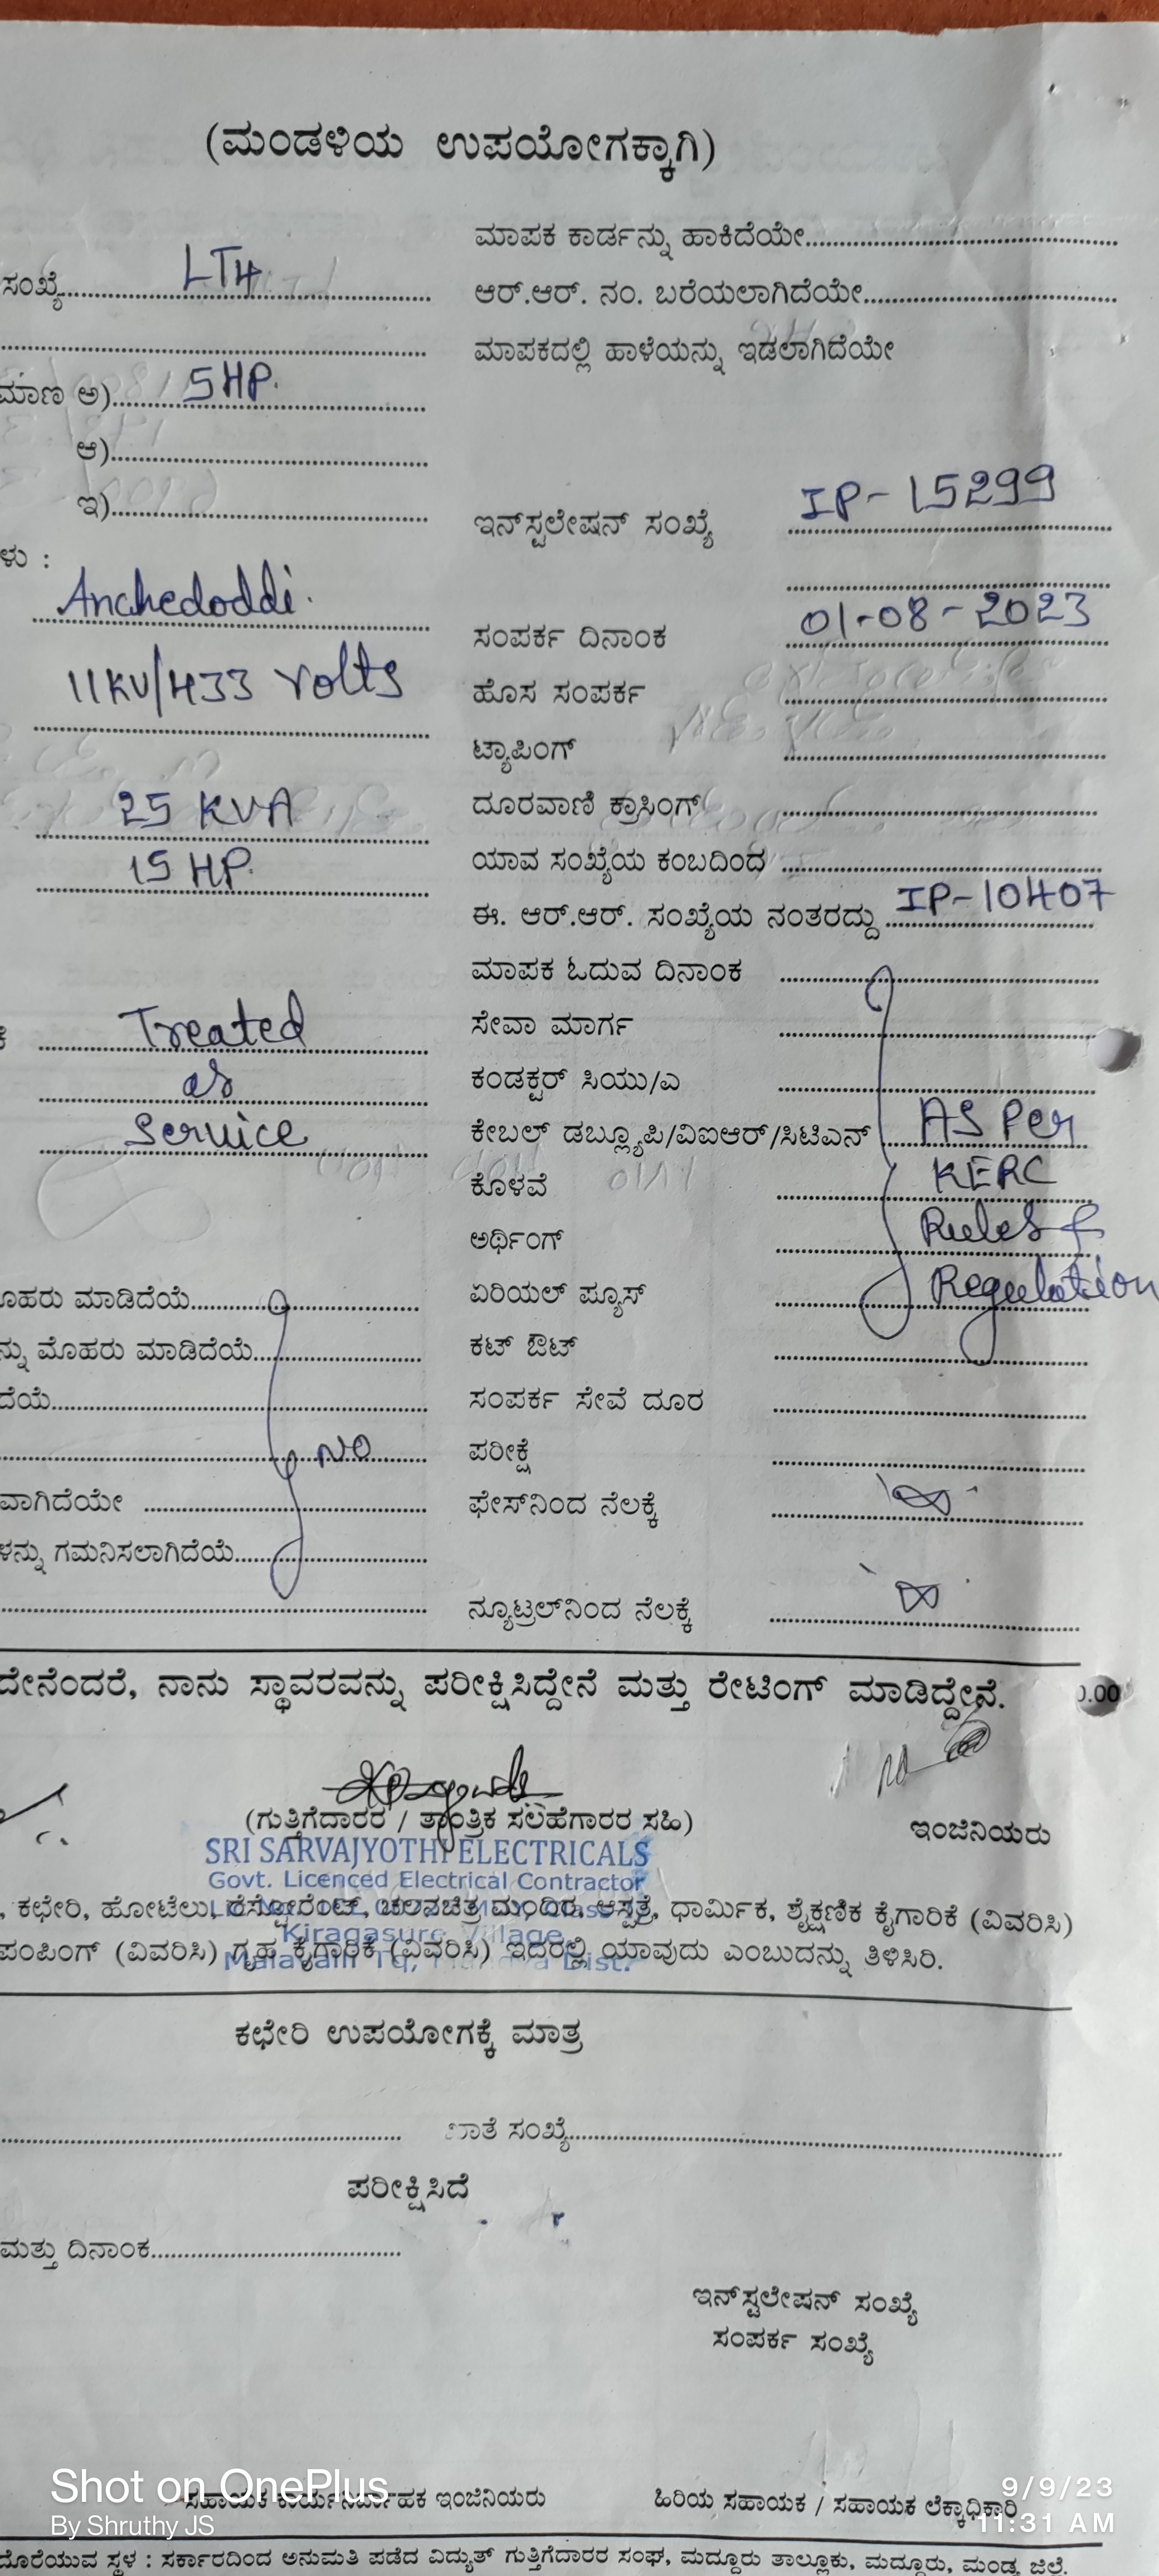 (ಮಂಡಳಿಯ ಉಪಯೋಗಕ್ಕಾಗಿ)
ಮಾಪಕ ಕಾರ್ಡನ್ನು ಹಾಕಿದೆಯೇ
ಸಂಖ್ಯೆ LT4
ಆರ್.ಆರ್. ನಂ. ಬರೆಯಲಾಗಿದೆಯೇ
ಮಾಪಕದಲ್ಲಿ ಹಾಳೆಯನ್ನು ಇಡಲಾಗಿದೆಯೇ
ಮಾಣ ಅ) 5 HP.
ಆ)
ಇ)
ಇನ್‌ಸ್ಟಲೇಷನ್ ಸಂಖ್ಯೆ IP-15299
ಳು :
Anchedoddi.
ಸಂಪರ್ಕ ದಿನಾಂಕ 01-08-2023
11KV/433 volts
ಹೊಸ ಸಂಪರ್ಕ
ಟ್ಯಾಪಿಂಗ್
25 KVA
ದೂರವಾಣಿ ಕ್ರಾಸಿಂಗ್
15 HP.
ಯಾವ ಸಂಖ್ಯೆಯ ಕಂಬದಿಂದ
ಈ. ಆರ್.ಆರ್. ಸಂಖ್ಯೆಯ ನಂತರದ್ದು IP-10407
ಮಾಪಕ ಓದುವ ದಿನಾಂಕ
Treated
ಸೇವಾ ಮಾರ್ಗ
as
ಕಂಡಕ್ಟರ್ ಸಿಯು/ಎ
Service
ಕೇಬಲ್ ಡಬ್ಲ್ಯೂಪಿ/ವಿಐಆರ್/ಸಿಟಿಎನ್ AS Per
ಕೊಳವೆ KERC
ಅರ್ಥಿಂಗ್ Rules &
ಏರಿಯಲ್ ಪ್ಯೂಸ್ Regulation
ೊಹರು ಮಾಡಿದೆಯೆ
ನ್ನು ಮೊಹರು ಮಾಡಿದೆಯೆ
ಕಟ್ ಔಟ್
ದೆಯೆ
ಸಂಪರ್ಕ ಸೇವೆ ದೂರ
NO
ಪರೀಕ್ಷೆ
ವಾಗಿದೆಯೇ
ಫೇಸ್‌ನಿಂದ ನೆಲಕ್ಕೆ
ಳನ್ನು ಗಮನಿಸಲಾಗಿದೆಯೆ
ನ್ಯೂಟ್ರಲ್‌ನಿಂದ ನೆಲಕ್ಕೆ
ದೇನೆಂದರೆ, ನಾನು ಸ್ಥಾವರವನ್ನು ಪರೀಕ್ಷಿಸಿದ್ದೇನೆ ಮತ್ತು ರೇಟಿಂಗ್ ಮಾಡಿದ್ದೇನೆ.
0.00
(ಗುತ್ತಿಗೆದಾರರ / ತಾಂತ್ರಿಕ ಸಲಹೆಗಾರರ ಸಹಿ)
ಇಂಜಿನಿಯರು
SRI SARVAJYOTHI ELECTRICALS
Govt. Licenced Electrical Contractor
, ಕಛೇರಿ, ಹೋಟೆಲು, ರೆಸ್ಟೋರೆಂಟ್, ಚಲನಚಿತ್ರ ಮಂದಿರ, ಆಸ್ಪತ್ರೆ, ಧಾರ್ಮಿಕ, ಶೈಕ್ಷಣಿಕ ಕೈಗಾರಿಕೆ (ವಿವರಿಸಿ)
Kiragasuru Village
ಪಂಪಿಂಗ್ (ವಿವರಿಸಿ) ಗೃಹ ಕೈಗಾರಿಕೆ (ವಿವರಿಸಿ) ಇದರಲ್ಲಿ ಯಾವುದು ಎಂಬುದನ್ನು ತಿಳಿಸಿರಿ.
ಕಛೇರಿ ಉಪಯೋಗಕ್ಕೆ ಮಾತ್ರ
ಖಾತೆ ಸಂಖ್ಯೆ
ಪರೀಕ್ಷಿಸಿದೆ
ಮತ್ತು ದಿನಾಂಕ
ಇನ್‌ಸ್ಟಲೇಷನ್ ಸಂಖ್ಯೆ
ಸಂಪರ್ಕ ಸಂಖ್ಯೆ
Shot on OnePlus
By Shruthy JS
ಸಹಾಯಕ ಕಾರ್ಯನಿರ್ವಾಹಕ ಇಂಜಿನಿಯರು
ಹಿರಿಯ ಸಹಾಯಕ / ಸಹಾಯಕ ಲೆಕ್ಕಾಧಿಕಾರಿ
9/9/23
11:31 AM
ದೊರೆಯುವ ಸ್ಥಳ : ಸರ್ಕಾರದಿಂದ ಅನುಮತಿ ಪಡೆದ ವಿದ್ಯುತ್ ಗುತ್ತಿಗೆದಾರರ ಸಂಘ, ಮದ್ದೂರು ತಾಲ್ಲೂಕು, ಮದ್ದೂರು, ಮಂಡ್ಯ ಜಿಲ್ಲೆ.